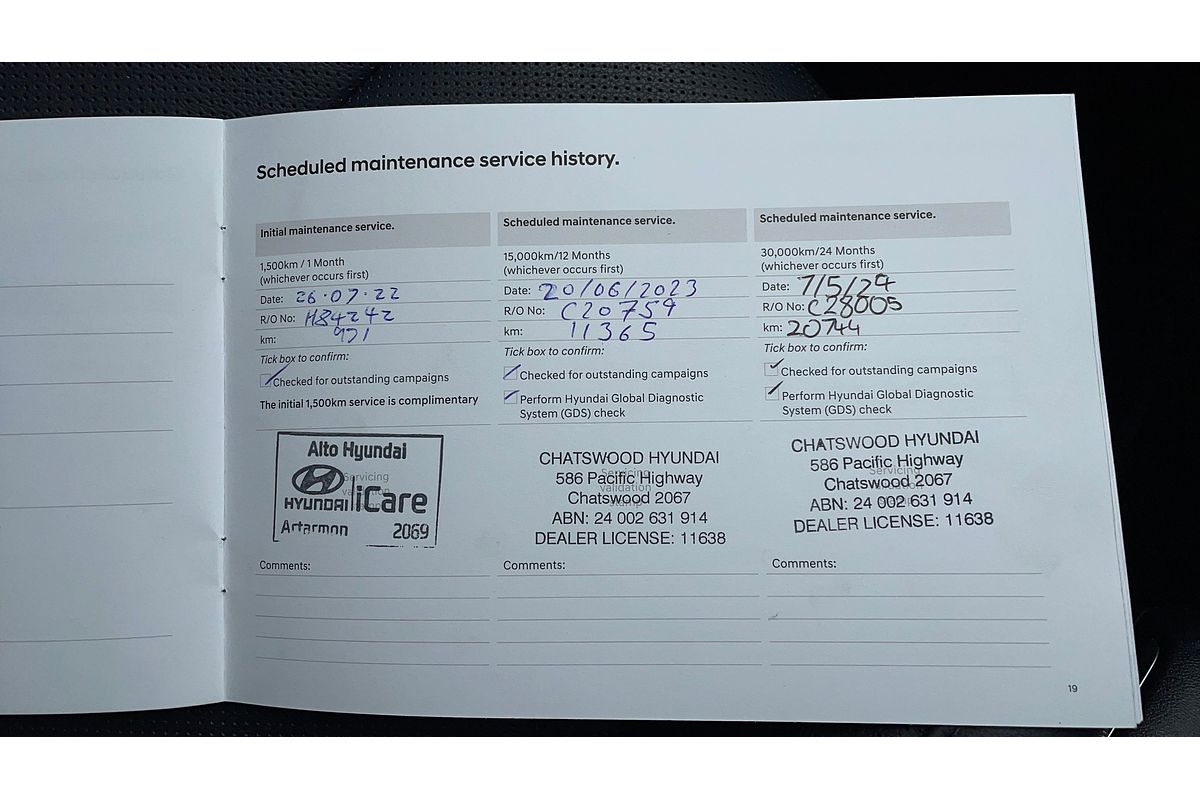 Scheduled maintenance service history.
Initial maintenance service.
1,500km / 1 Month
(whichever occurs first)
Date: 26·07·22
R/O No: H84242
km: 971
Tick box to confirm:
Checked for outstanding campaigns
The initial 1,500km service is complimentary
Alto Hyundai
Servicing
HYUNDAI iCare
Artarmon 2069
Comments:
Scheduled maintenance service.
15,000km/12 Months
(whichever occurs first)
Date: 20/06/2023
R/O No: C20759
km: 11365
Tick box to confirm:
Checked for outstanding campaigns
Perform Hyundai Global Diagnostic
System (GDS) check
CHATSWOOD HYUNDAI
Servicing
586 Pacific Highway
validation
Chatswood 2067
stamp
ABN: 24 002 631 914
DEALER LICENSE: 11638
Comments:
Scheduled maintenance service.
30,000km/24 Months
(whichever occurs first)
Date: 7/5/24
R/O No: C28005
km: 20744
Tick box to confirm:
Checked for outstanding campaigns
Perform Hyundai Global Diagnostic
System (GDS) check
CHATSWOOD HYUNDAI
586 Pacific Highway
Servicing
Chatswood 2067
ABN: 24 002 631 914
DEALER LICENSE: 11638
Comments:
19